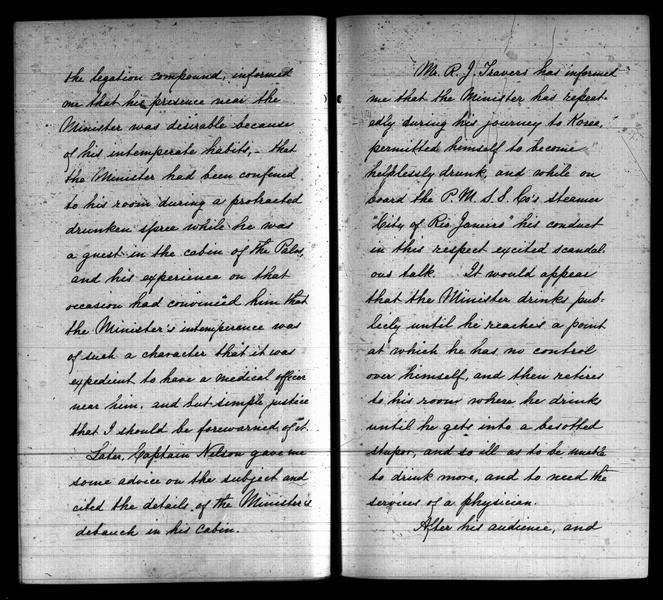 the legation compound, informed
me that his presence near the
Minister was desirable because
of his intemperate habits, - that
the Minister had been confined
to his room during a protracted
drunken spree while he was
a guest in the cabin of the Palos,
and his experience on that
occasion had convinced him that
the Minister's intemperance was
of such a character that it was
expedient to have a medical officer
near him, and but simple justice
that I should be forewarned of it.
Later, Captain Nelson gave me
some advice on the subject and
cited the details of the Minister's
debauch in his cabin.
Mr. R. J. Travers has informed
me that the Minister has repeat-
edly during his journey to Korea,
permitted himself to become
helplessly drunk, and while on
board the P. M. S. S. Co's steamer
"City of Rio Janeiro" his conduct
in this respect excited scandal-
ous talk. It would appear
that the Minister drinks pub-
licly until he reaches a point
at which he has no control
over himself, and then retires
to his room where he drinks
until he gets into a besotted
stupor, and so ill as to be unable
to drink more, and to need the
services of a physician.
After his audience, and